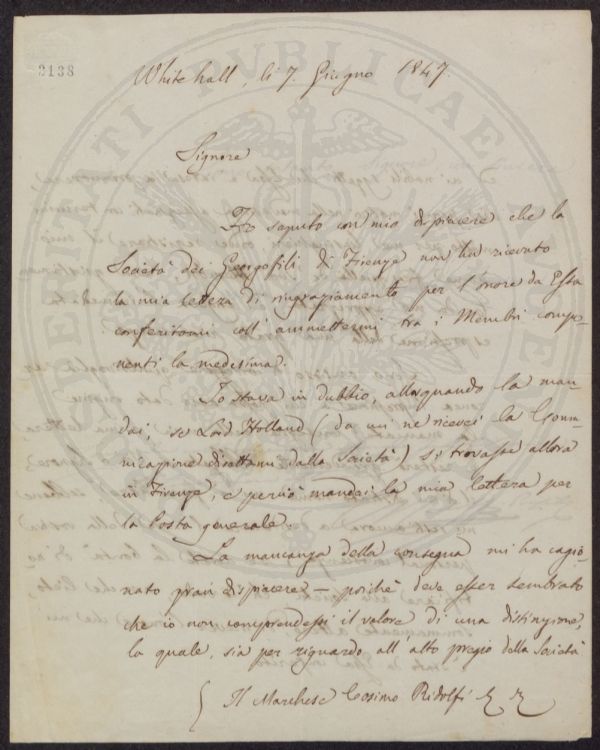 3138
White hall, li 7. Giugno 1847.
Signore
Ho saputo con mio dispiacere che la
Società dei Georgofili di Firenze non ha ricevuto
la mia lettera di ringraziamento per l'onore da Essa
conferitomi coll'ammettermi tra i Membri compo-
nenti la medesima.
Io stava in dubbio, allorquando la man-
dai, se Lord Holland (da cui ne ricevei la Comu-
nicazione direttami dalla Società) si trovasse allora
in Firenze, e perciò mandai la mia lettera per
la Posta generale.
La mancanza della consegna mi ha cagio-
nato gran dispiacere — poichè deve esser sembrato
che io non comprendessi il valore di una distinzione,
la quale, sia per riguardo all'alto pregio della Società
Il Marchese Cosimo Ridolfi